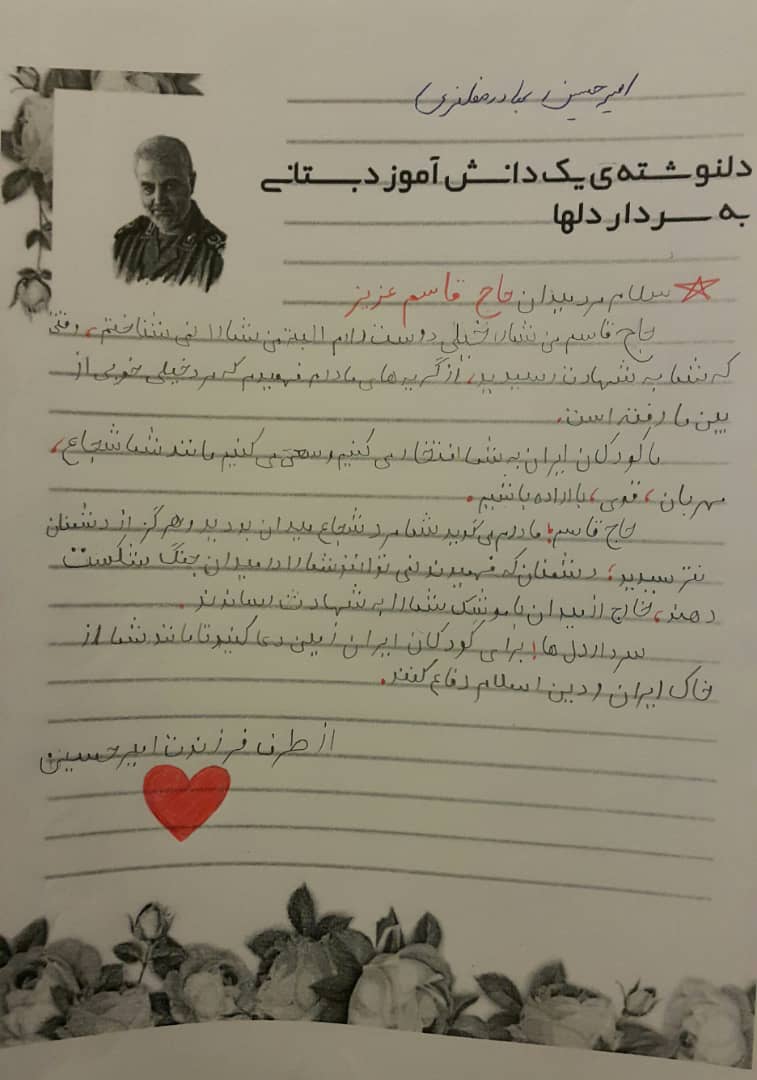 امیرحسین بهادر مظفری
دلنوشته‌ی یک دانش آموز دبستانی
به سردار دلها
سلام مرد میدان حاج قاسم عزیز
حاج قاسم من شما را خیلی دوست دارم البته من شما را نمی شناختم، وقتی
که شما به شهادت رسیدید، از گریه های مادرم فهمیدم که مرد خیلی خوبی از
بین ما رفته است.
ما کودکان ایران به شما افتخار می کنیم و سعی می کنیم مانند شما شجاع،
مهربان، قوی، با اراده باشیم.
حاج قاسم! مادرم می گوید شما مرد شجاع میدان بودید و هرگز از دشمنان
نترسیدید، دشمنان که فهمیدند نمی توانند شما را در میدان جنگ شکست
دهند، خارج از میدان با موشک شما را به شهادت رساندند.
سردار دل ها! برای کودکان ایران زمین دعا کنید تا مانند شما از
خاک ایران و دین اسلام دفاع کنند.
از طرف فرزندت امیرحسین